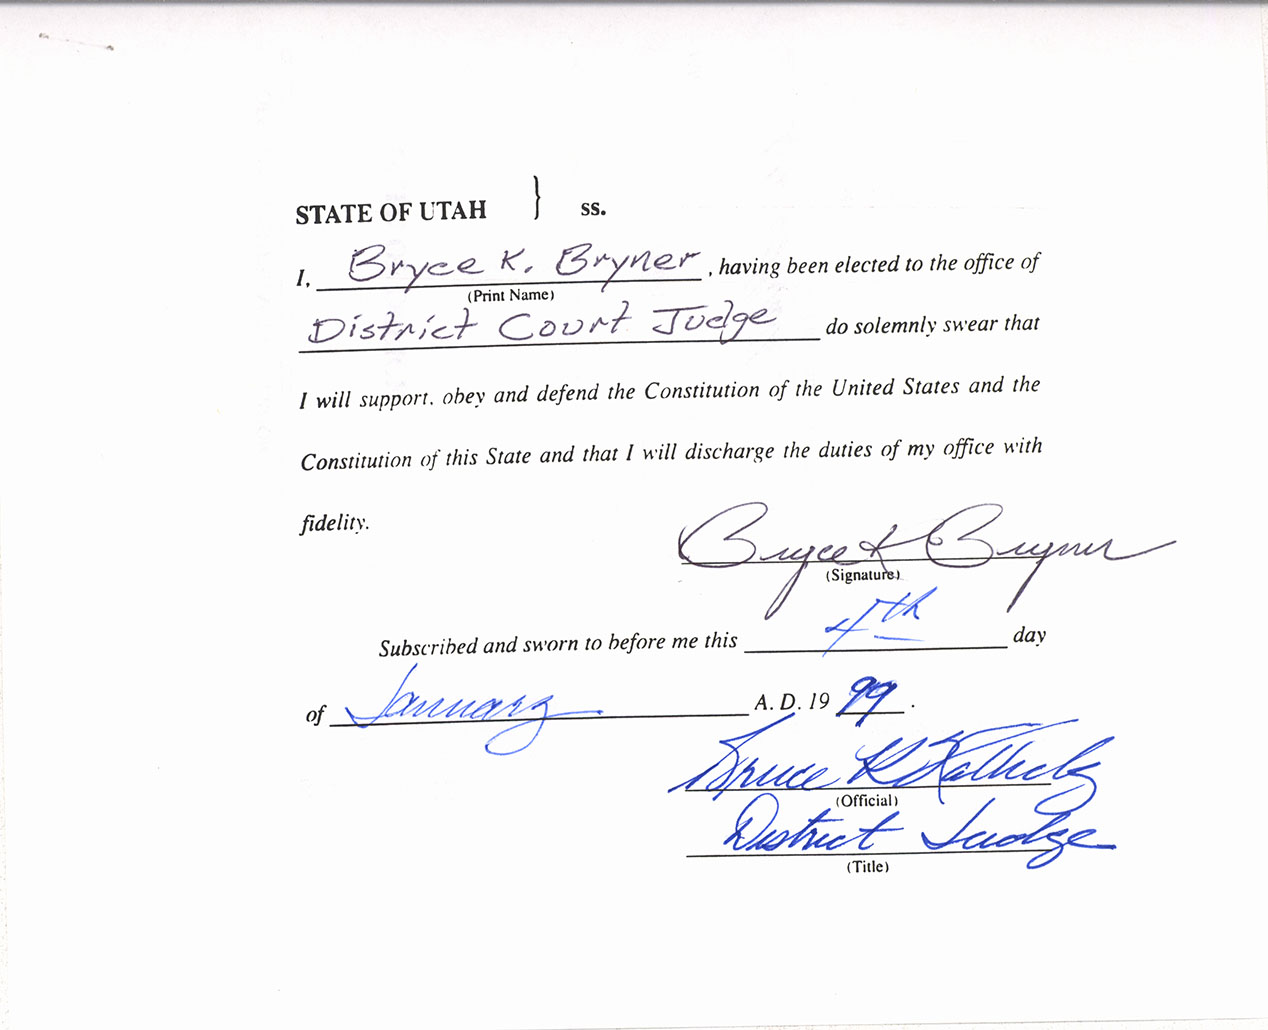 STATE OF UTAH } ss.
I, Bryce K. Bryner, having been elected to the office of
(Print Name)
District Court Judge do solemnly swear that
I will support, obey and defend the Constitution of the United States and the
Constitution of this State and that I will discharge the duties of my office with
fidelity.
Bryce K Bryner
(Signature)
Subscribed and sworn to before me this 4th day
of January A. D. 19 99.
Bruce K
(Official)
District Judge
(Title)